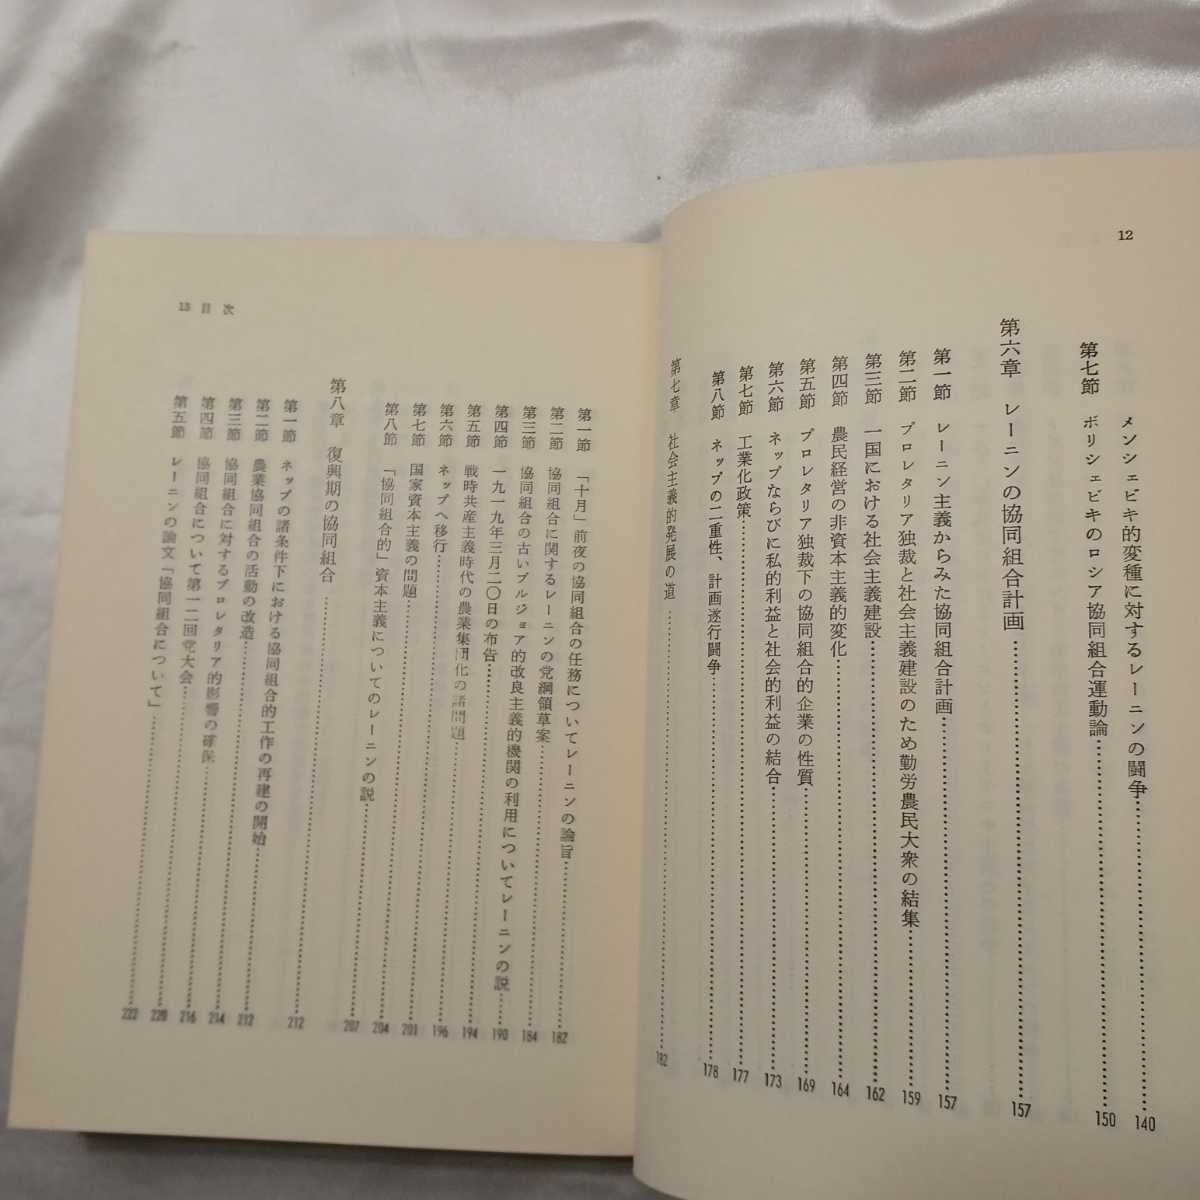 12
メンシェビキ的変種に対するレーニンの闘争 140
第七節 ボリシェビキのロシア協同組合運動論 150
第六章 レーニンの協同組合計画 157
第一節 レーニン主義からみた協同組合計画 157
第二節 プロレタリア独裁と社会主義建設のため勤労農民大衆の結集 159
第三節 一国における社会主義建設 162
第四節 農民経営の非資本主義的変化 164
第五節 プロレタリア独裁下の協同組合的企業の性質 169
第六節 ネップならびに私的利益と社会的利益の結合 173
第七節 工業化政策 177
第八節 ネップの二重性、計画遂行闘争 178
第七章 社会主義的発展の道 182
13 目次
第一節 「十月」前夜の協同組合の任務についてレーニンの論旨 182
第二節 協同組合に関するレーニンの党綱領草案 184
第三節 協同組合の古いブルジョア的改良主義的機関の利用についてレーニンの説 190
第四節 一九一九年三月二〇日の布告 194
第五節 戦時共産主義時代の農業集団化の諸問題 196
第六節 ネップへ移行 201
第七節 国家資本主義の問題 204
第八節 「協同組合的」資本主義についてのレーニンの説 207
第八章 復興期の協同組合 212
第一節 ネップの諸条件下における協同組合的工作の再建の開始 212
第二節 農業協同組合の活動の改造 214
第三節 協同組合に対するプロレタリア的影響の確保 216
第四節 協同組合について第一二回党大会 220
第五節 レーニンの論文「協同組合について」 222